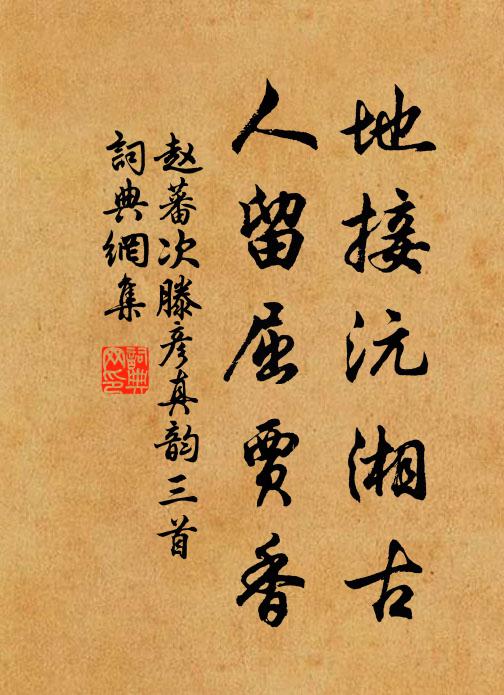 地接沅湘古
人留屈賈香
赵蕃次滕彦真韵三首
詞典網集
詞典网印